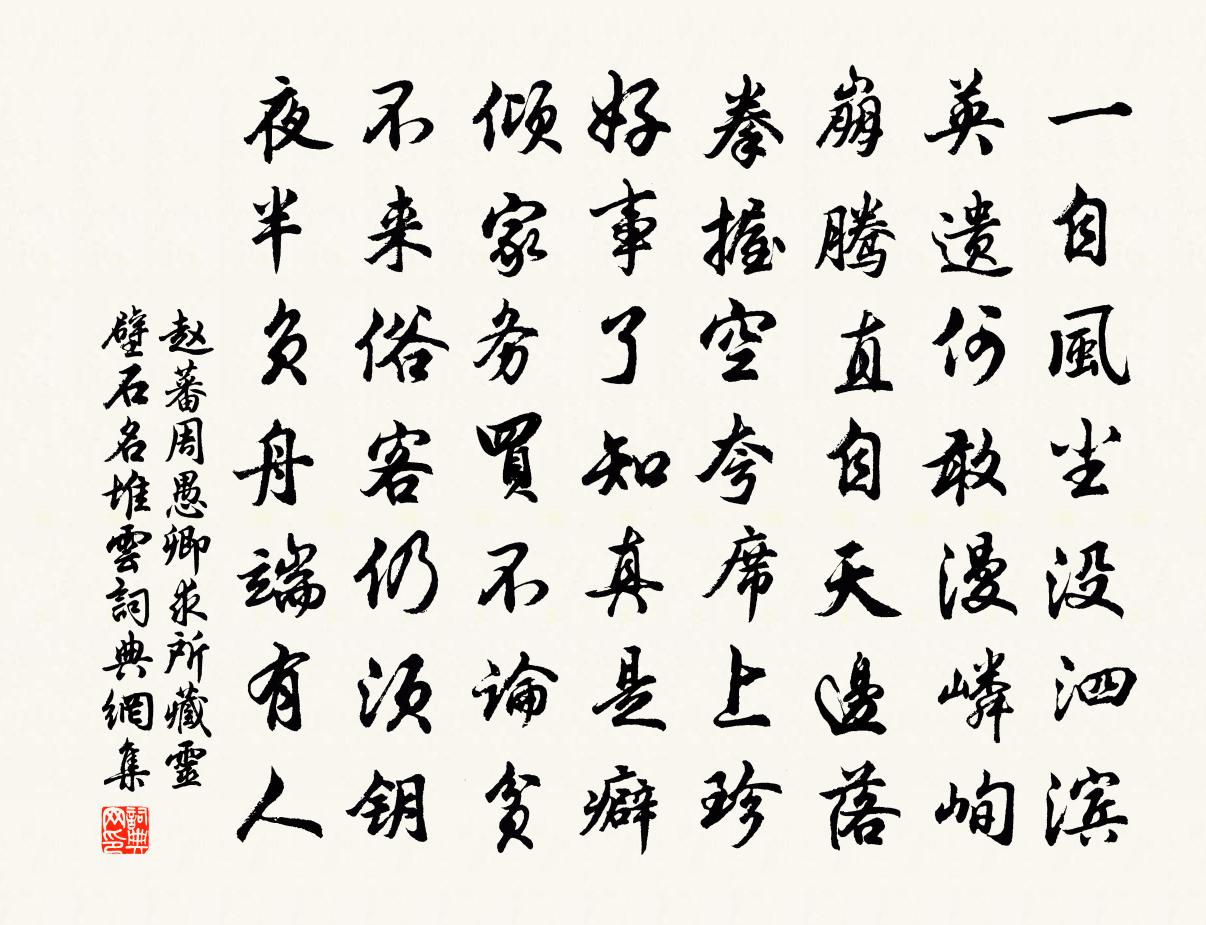 一自風尘没泗滨
英遗何敢漫嶙峋
崩腾直自天邊落
拳握空夸席上珍
好事了知真是癖
倾家务買不論貧
不来俗客仍须钥
夜半负舟端有人
赵蕃周愚卿求所藏靈
壁石名堆雲詞典網集
詞典网印